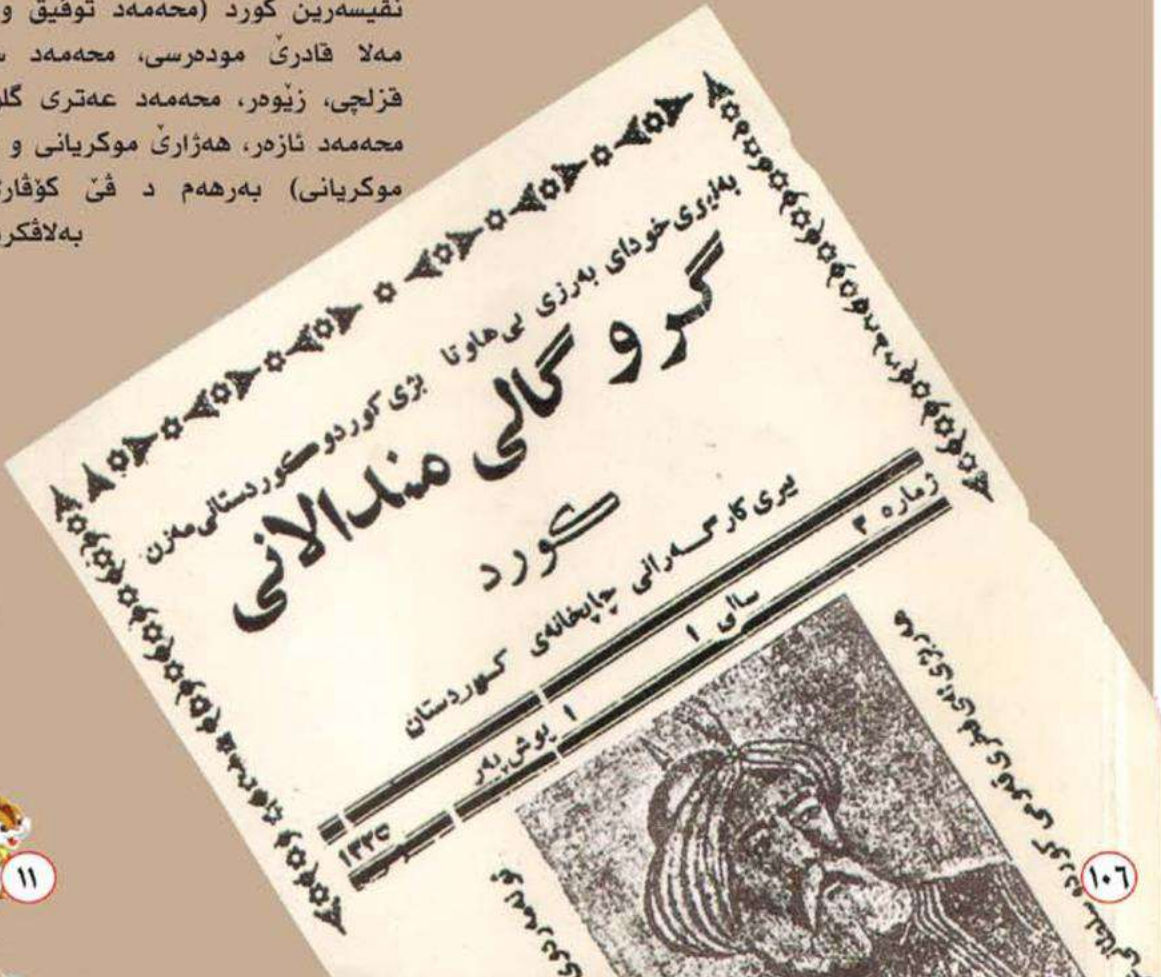 نڤیسەرین کورد (محەمەد توفیق و
مەلا قادرێ مودەرسی، محەمەد
قزلجی، زێوەر، محەمەد عەتری
محەمەد ئازەر، هەژارێ موکریانی و
موکریانی) بەرهەم د ڤێ کۆڤار
بەلاڤکر
خودای بەرزی بی‌هاوتا بژی کوردو کوردستانی مەزن
گر و گالی مندالانی
کورد
بیری کارگەرانی چاپخانەی کوردستان
ژمارە ٣
سالی ١
١ پوش‌پەر
١٣٢٥
١١
١٠٦